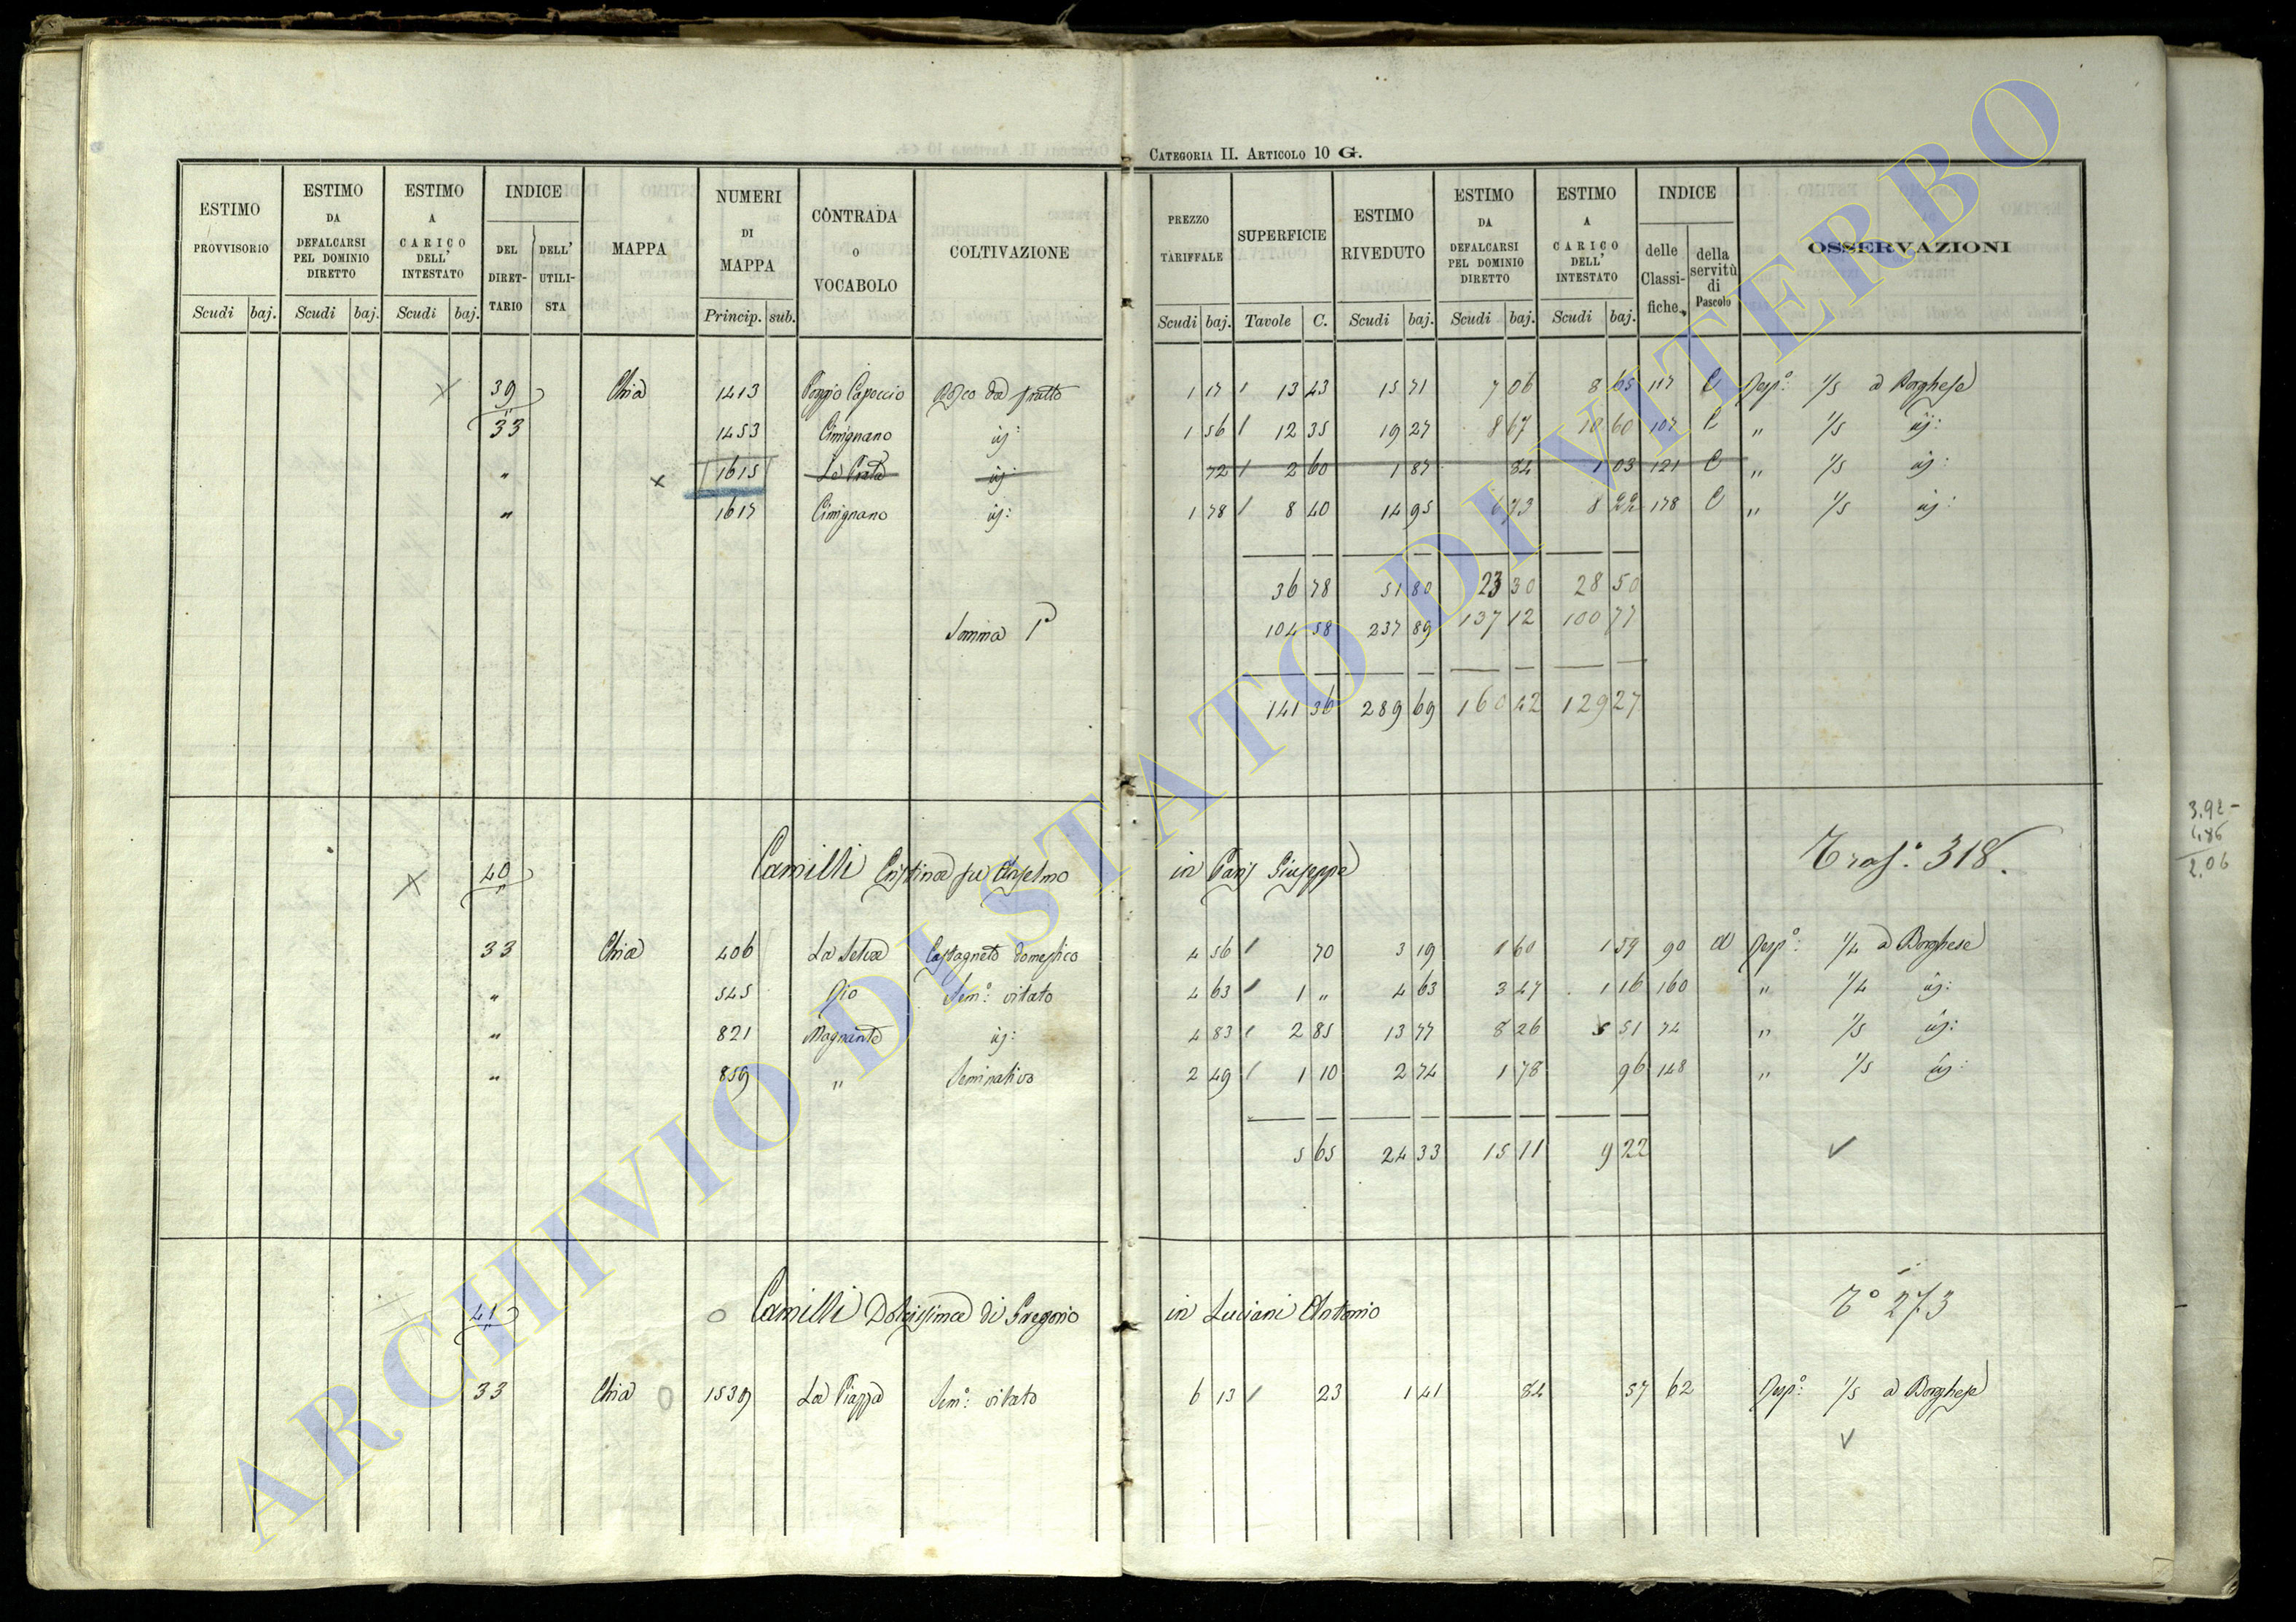 CATEGORIA II. ARTICOLO 10 G.
ESTIMO PROVVISORIO Scudi baj. ESTIMO DA DEFALCARSI PEL DOMINIO DIRETTO Scudi baj. ESTIMO A CARICO DELL' INTESTATO Scudi baj. INDICE DEL DIRETTARIO DELL' UTILISTA MAPPA NUMERI DI MAPPA Princip. sub. CONTRADA O VOCABOLO COLTIVAZIONE PREZZO TARIFFALE Scudi baj. SUPERFICIE Tavole C. ESTIMO RIVEDUTO Scudi baj. ESTIMO DA DEFALCARSI PEL DOMINIO DIRETTO Scudi baj. ESTIMO A CARICO DELL' INTESTATO Scudi baj. INDICE delle Classifiche della servitù di Pascolo OSSERVAZIONI
39 Chia 1413 Poggio Capoccio Bosco da frutto 1 17 13 43 15 71 7 06 8 65 117 C Risp.º: 1/5 a Borghese
33 1453 Cimignano id: 1 56 12 35 19 27 8 67 10 60 107 C " 1/5 id:
" 1615 id: 72 2 60 1 87 84 1 03 121 C " 1/5 id:
" 1617 Cimignano id: 1 78 8 40 14 95 6 73 8 22 178 C " 1/5 id:
36 78 51 80 23 30 28 50
Somma Pª 104 58 237 89 137 12 100 77
141 36 289 69 160 42 129 27
40 Camilli Cristina fu Anselmo in Paris Giuseppe Trasº: 318.
33 Chia 406 La Selva Castagneto domestico 4 56 70 3 19 1 60 1 59 90 Risp.º: 1/4 a Borghese
" 545 Rio Sem.º: vitato 4 63 1 " 4 63 3 47 1 16 160 " 1/4 id:
" 821 Magnante id: 4 83 2 85 13 77 8 26 5 51 74 " 1/5 id:
" 859 " Seminativo 2 49 1 10 2 74 1 78 96 148 " 1/5 id:
5 65 24 33 15 11 9 22
41 Camilli Dolcissima di Gregorio in Luciani Antonio Tº 273
33 Chia 1539 La Piazza Sem.º: vitato 6 13 23 1 41 84 57 62 Risp.º: 1/5 a Borghese
3.92
2.06
ARCHIVIO DI STATO DI VITERBO